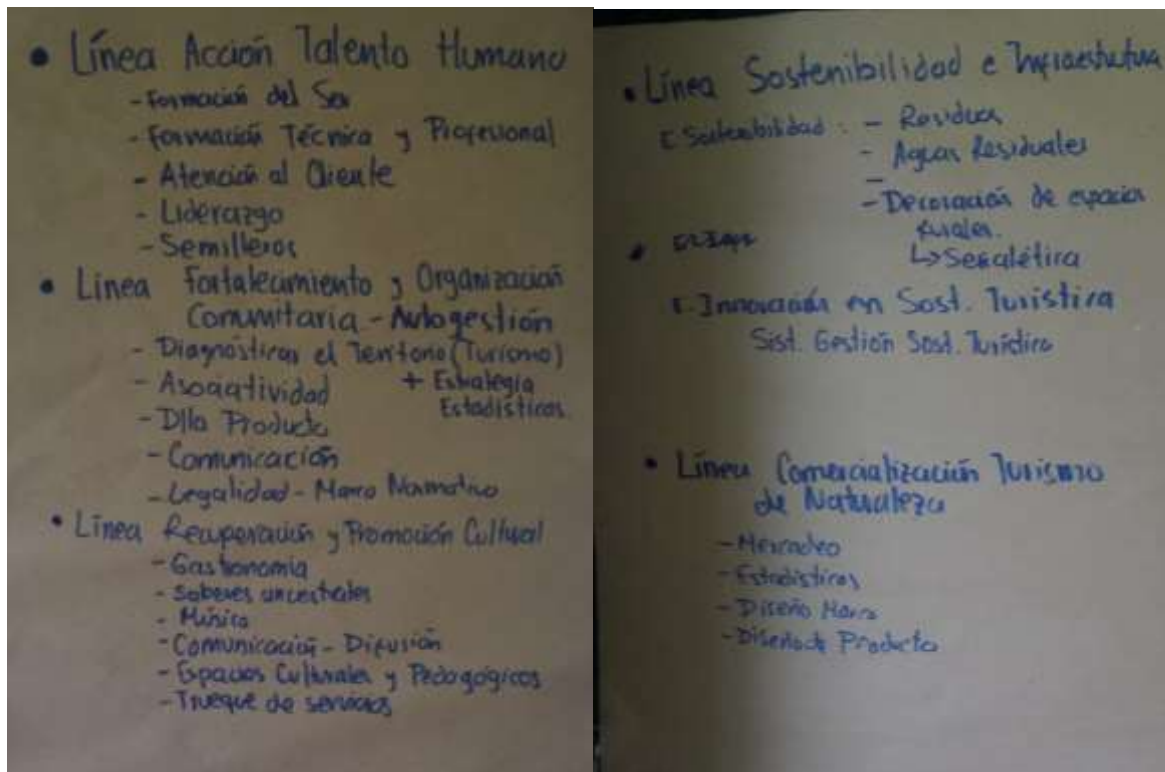 • Línea Acción Talento Humano
- Formación del Ser
- Formación Técnica y Profesional
- Atención al Cliente
- Liderazgo
- Semilleros
• Línea Fortalecimiento y Organización
Comunitaria - Autogestión
- Diagnosticar el Territorio (Turismo)
- Asociatividad + Estrategia
Estadísticas
- Dllo Producto
- Comunicación
- Legalidad - Marco Normativo
• Línea Recuperación y Promoción Cultural
- Gastronomía
- Saberes ancestrales
- Música
- Comunicación - Difusión
- Espacios Culturales y Pedagógicos
- Trueque de servicios
• Línea Sostenibilidad e Infraestrutura
E. Sostenibilidad: - Residuos
- Aguas Residuales
-
- Decoración de espacios
rurales.
↳ Señalética
•
E. Innovación en Sost. Turística
Sist. Gestión Sost. Turística
• Línea Comercialización Turismo
de Naturaleza
- Mercadeo
- Estadísticas
- Diseño Marca
- Diseño de Producto